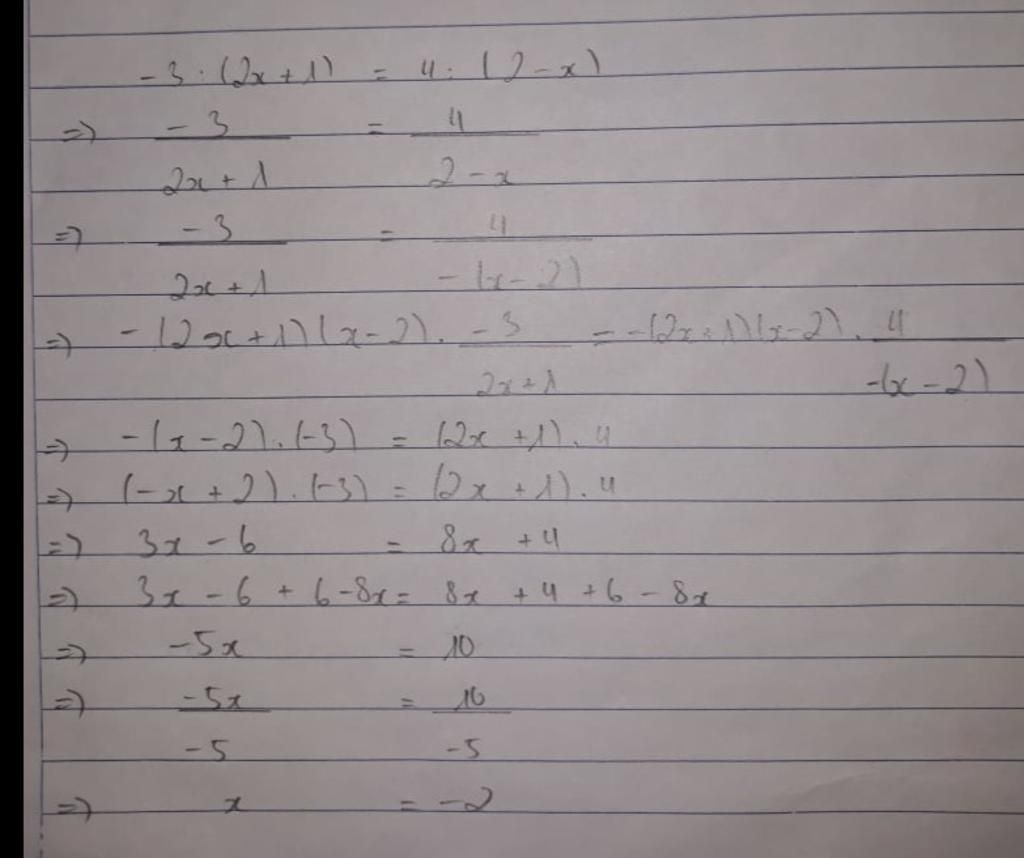 -3 : (2x + 1) = 4 : (2 - x)
=> -3 / 2x + 1 = 4 / 2 - x
=> -3 / 2x + 1 = 4 / -(x - 2)
=> -(2x + 1)(x - 2) . -3 / 2x + 1 = -(2x + 1)(x - 2) . 4 / -(x - 2)
=> -(x - 2) . (-3) = (2x + 1) . 4
=> (-x + 2) . (-3) = (2x + 1) . 4
=> 3x - 6 = 8x + 4
=> 3x - 6 + 6 - 8x = 8x + 4 + 6 - 8x
=> -5x = 10
=> -5x / -5 = 10 / -5
=> x = -2